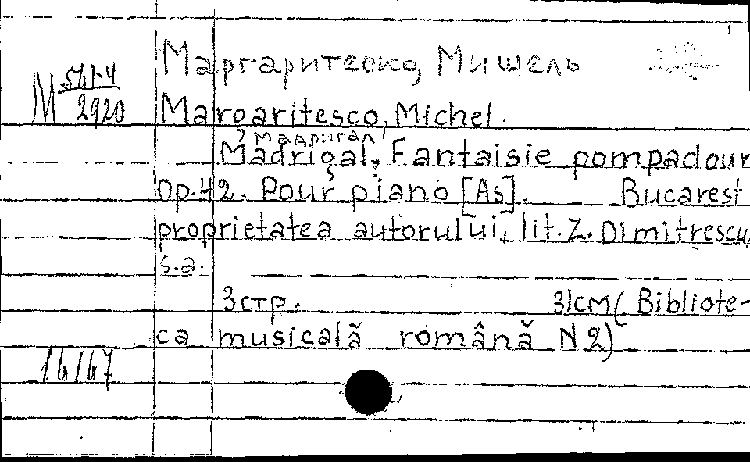 Маргаритеско, Мишель
М 571-4
2920
Margaritesco, Michel.
Мадригал
Madrigal, Fantaisie pompadour
Op. 42. Pour piano [As]. Bucarest
proprietatea autorului, lit. Z. Dimitrescu,
s.a.
3 стр. 31 см (Bibliote-
ca musicală română N 2)
16/67